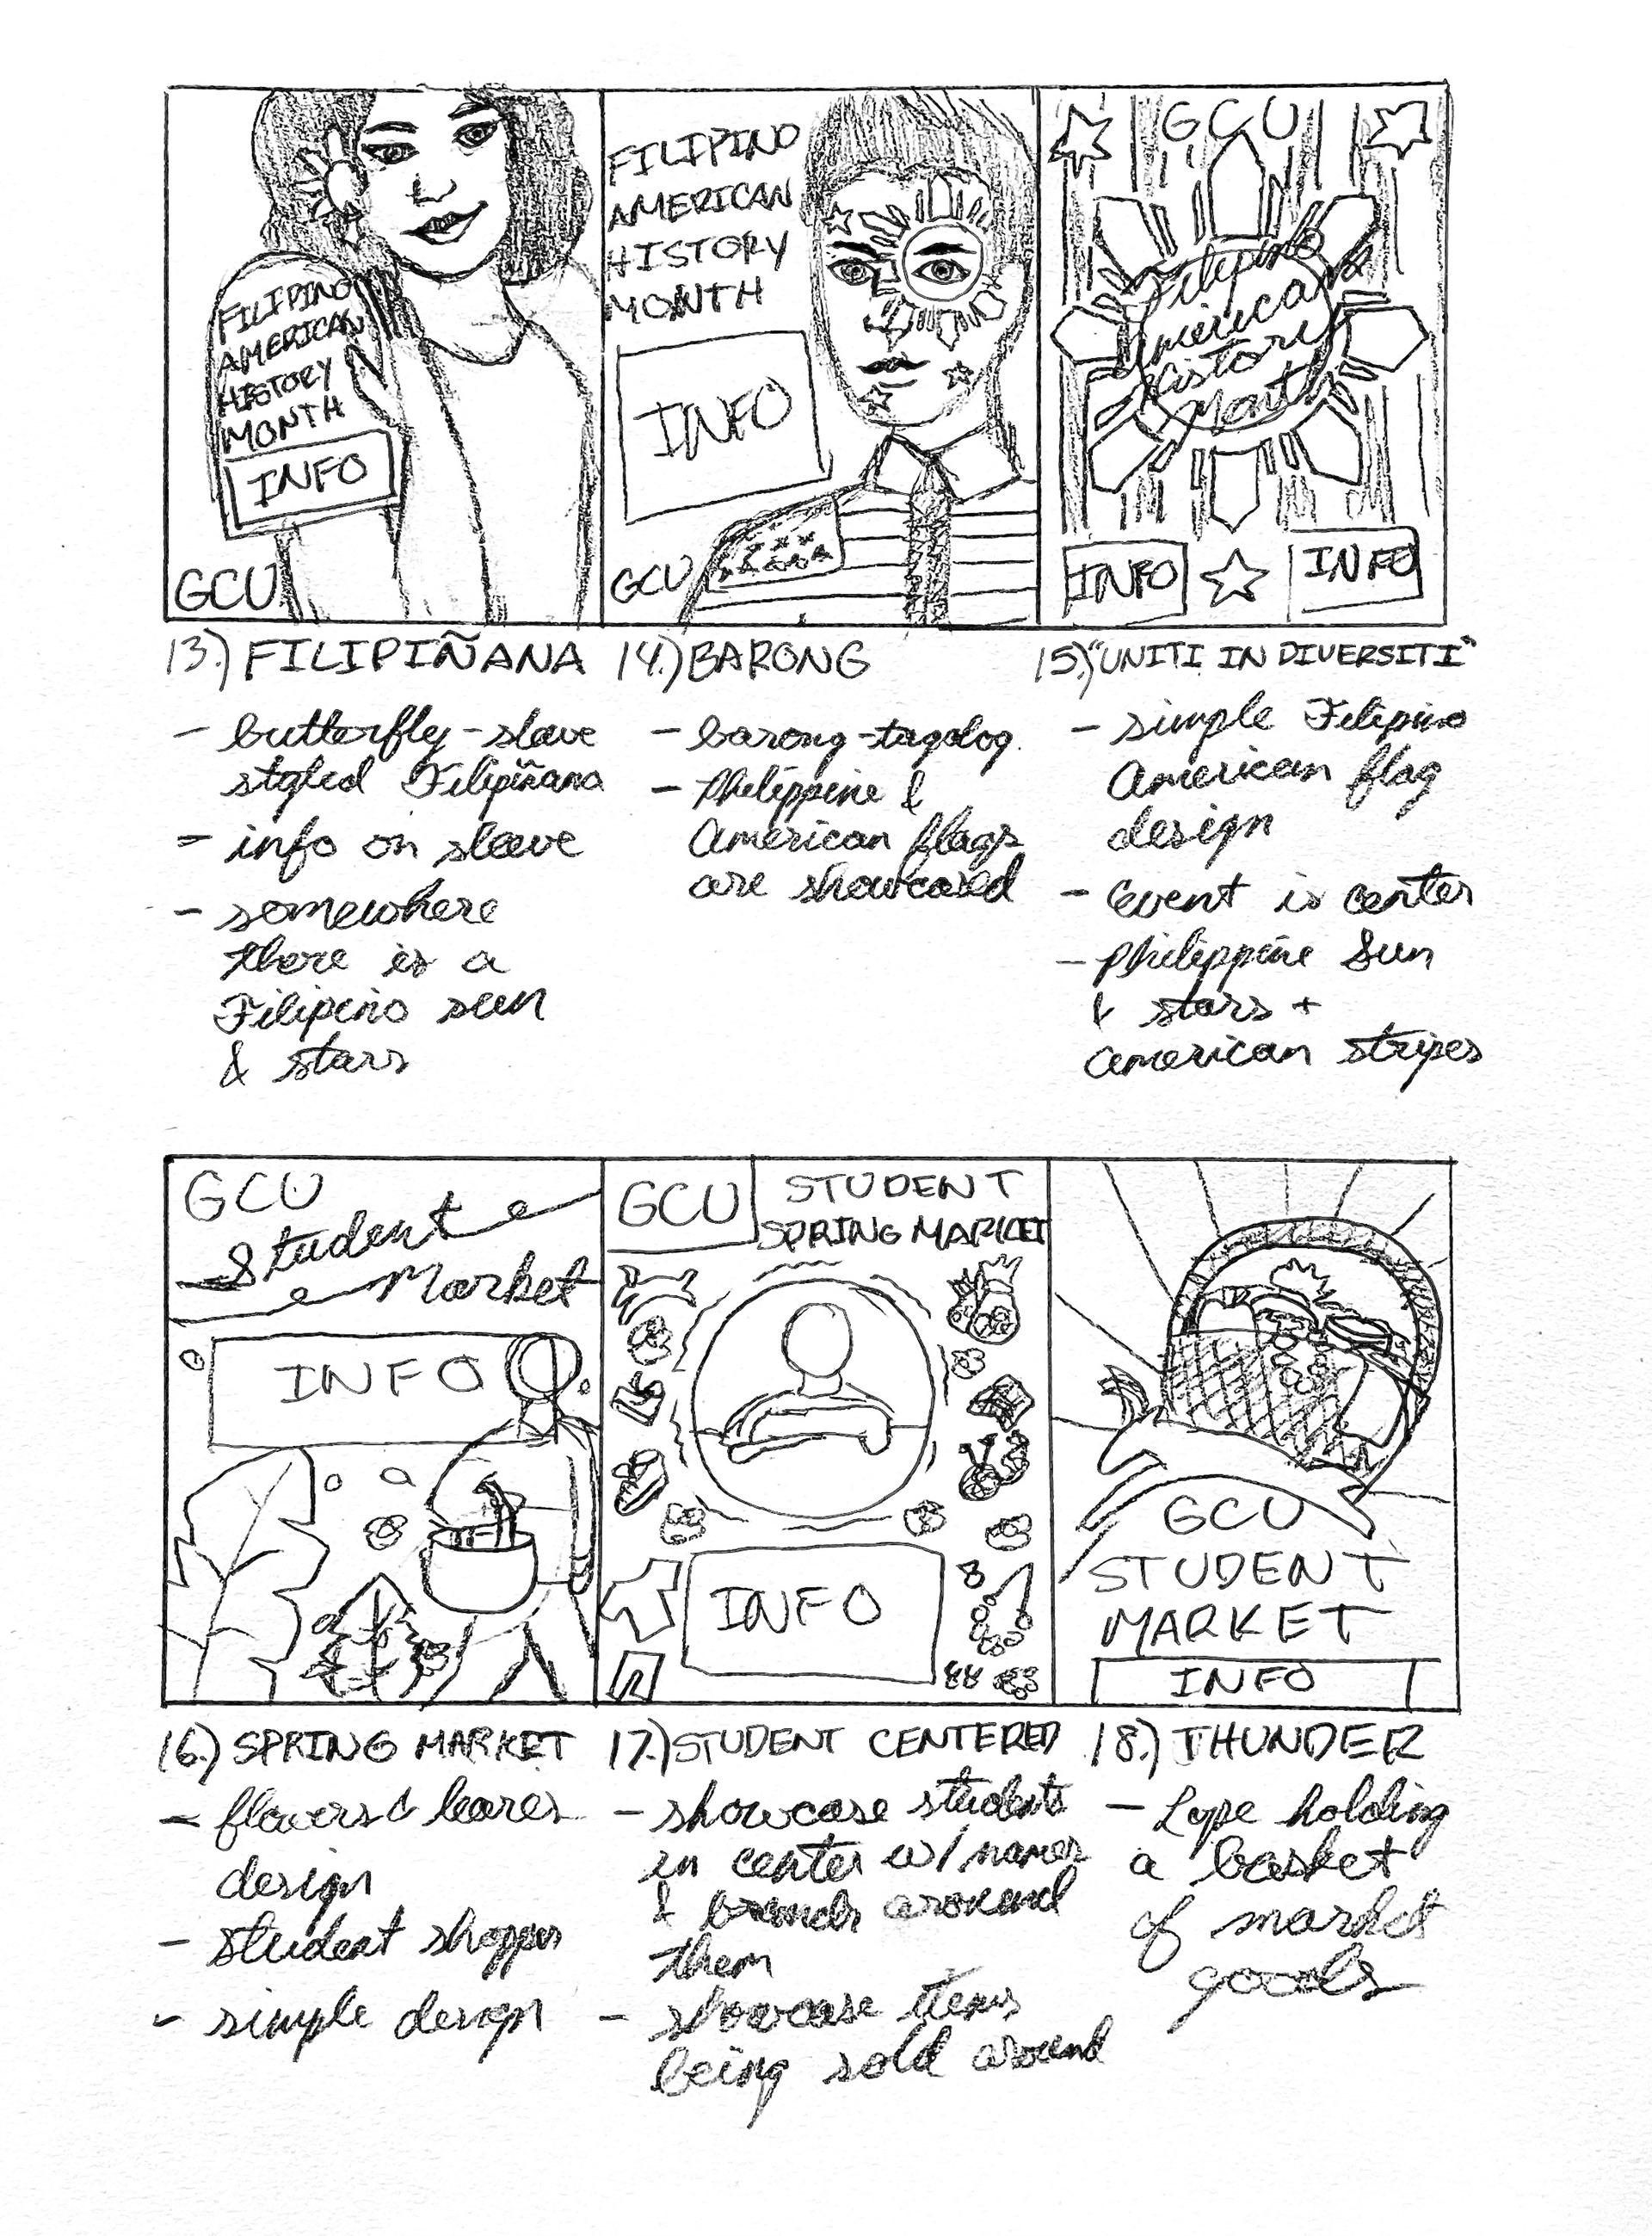 FILIPINO
AMERICAN
HISTORY
MONTH
INFO
GCU
FILIPINO
AMERICAN
HISTORY
MONTH
INFO
GCU
GCU
Filipino
American
History
Month
INFO
INFO
13.) FILIPIÑANA
- butterfly-sleave
styled Filipiñana
- info on sleeve
- somewhere
there is a
Filipino sun
& stars
14.) BARONG
- barong-tagolog.
- Philippine &
American flags
are showcased
15.) "UNITI IN DIVERSITI"
- simple Filipino
American flag
design
- Event is center
- Philippine Sun
& stars +
American stripes
GCU
Student
Market
INFO
GCU
STUDENT
SPRING MARKET
INFO
GCU
STUDENT
MARKET
INFO
16.) SPRING MARKET
- flowers & leaves
design
- student shopper
- simple design
17.) STUDENT CENTERED
- showcase students
in center w/ names
& brands around
them
- showcase items
being sold around
18.) THUNDER
- Lope holding
a basket
of market
goods